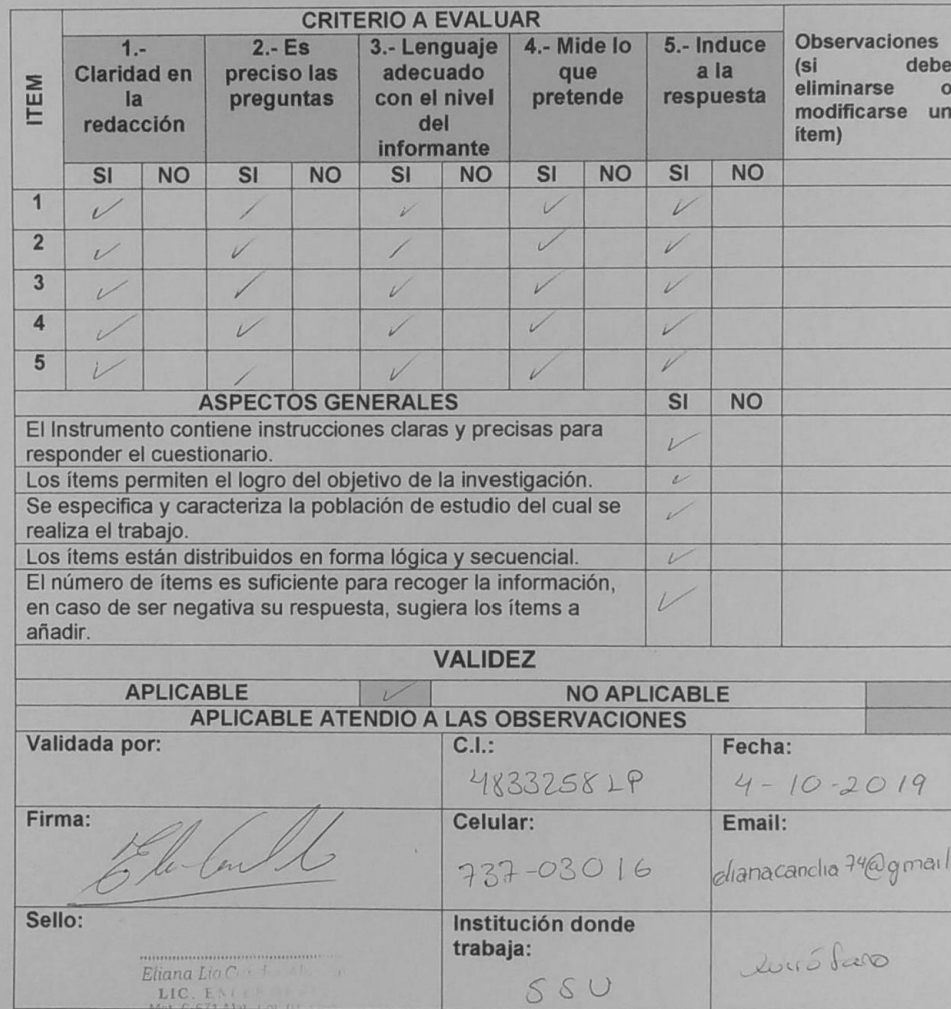 CRITERIO A EVALUAR
ITEM
1.-
Claridad en
la
redacción
2.- Es
preciso las
preguntas
3.- Lenguaje
adecuado
con el nivel
del
informante
4.- Mide lo
que
pretende
5.- Induce
a la
respuesta
Observaciones
(si debe
eliminarse o
modificarse un
ítem)
SI NO SI NO SI NO SI NO SI NO
1 ✓ ✓ ✓ ✓ ✓
2 ✓ ✓ ✓ ✓ ✓
3 ✓ ✓ ✓ ✓ ✓
4 ✓ ✓ ✓ ✓ ✓
5 ✓ ✓ ✓ ✓ ✓
ASPECTOS GENERALES SI NO
El Instrumento contiene instrucciones claras y precisas para
responder el cuestionario. ✓
Los ítems permiten el logro del objetivo de la investigación. ✓
Se especifica y caracteriza la población de estudio del cual se
realiza el trabajo. ✓
Los ítems están distribuidos en forma lógica y secuencial. ✓
El número de ítems es suficiente para recoger la información,
en caso de ser negativa su respuesta, sugiera los ítems a
añadir. ✓
VALIDEZ
APLICABLE ✓ NO APLICABLE
APLICABLE ATENDIO A LAS OBSERVACIONES
Validada por: C.I.: Fecha:
4833258 LP 4-10-2019
Firma: Celular: Email:
737-03016 elianacandia74@gmail
Sello: Institución donde
trabaja:
Eliana Lia
LIC.
SSU